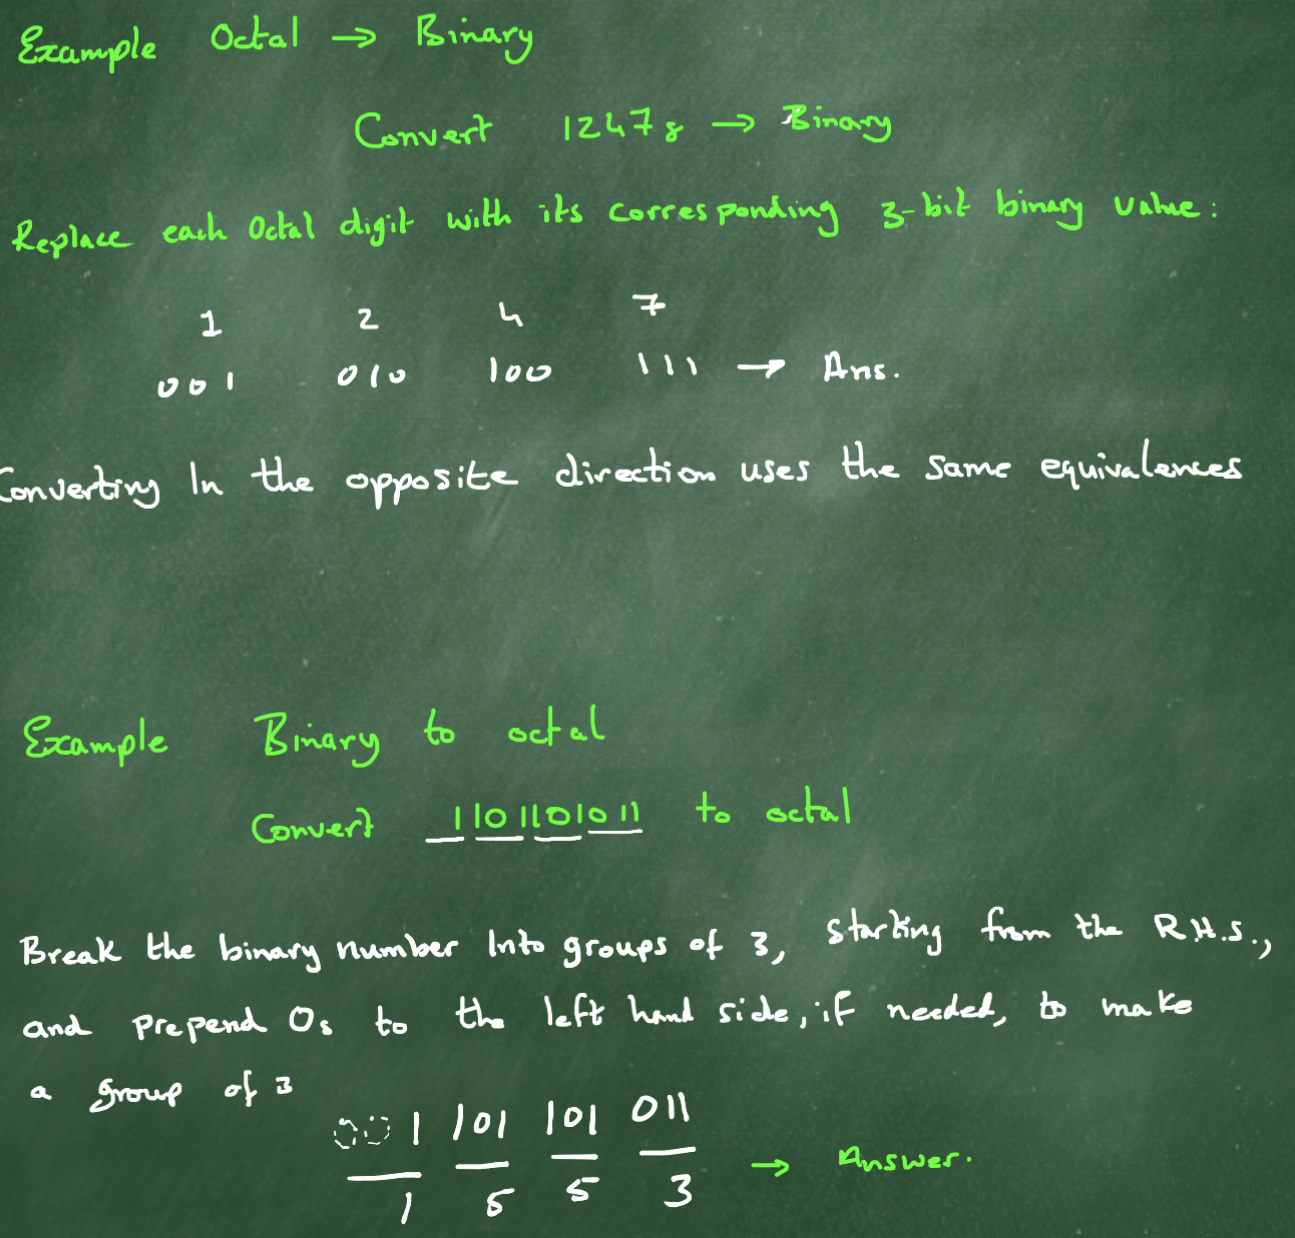 Example Octal → Binary
Convert 1247₈ → Binary
Replace each Octal digit with its corresponding 3-bit binary value:
1 2 4 7
001 010 100 111 → Ans.
Converting In the opposite direction uses the same equivalences
Example Binary to octal
Convert 1101101011 to octal
Break the binary number Into groups of 3, starting from the R.H.S.,
and prepend 0s to the left hand side, if needed, to make
a group of 3
001 101 101 011
1 5 5 3 → Answer.